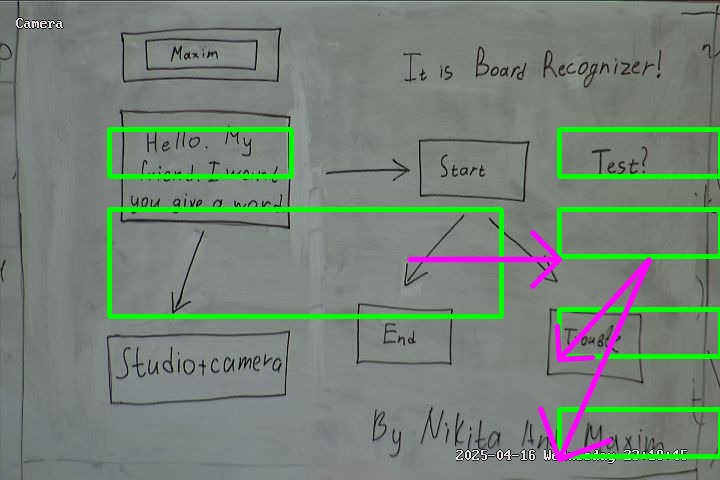 Camera
Maxim
It is Board Recognizer!
Hello. My
friend I want
you give a word
Start
Test?
End
Trouble
Studio+camera
By Nikita And Maxim
2025-04-16 Wednesday